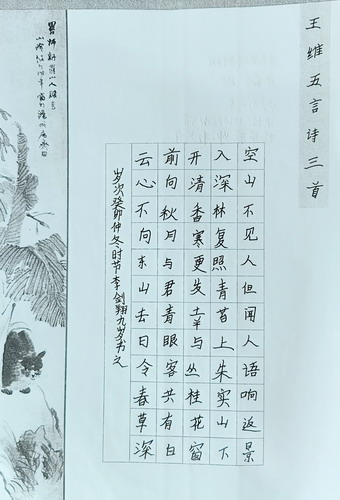 王维五言诗三首
空山不见人但闻人语响返景
入深林复照青苔上朱实山下
开清香寒更发幸与丛桂花窗
前向秋月与君青眼客共有白
云心不向东山去日令春草深
岁次癸卯仲冬时节李剑翔九岁书之